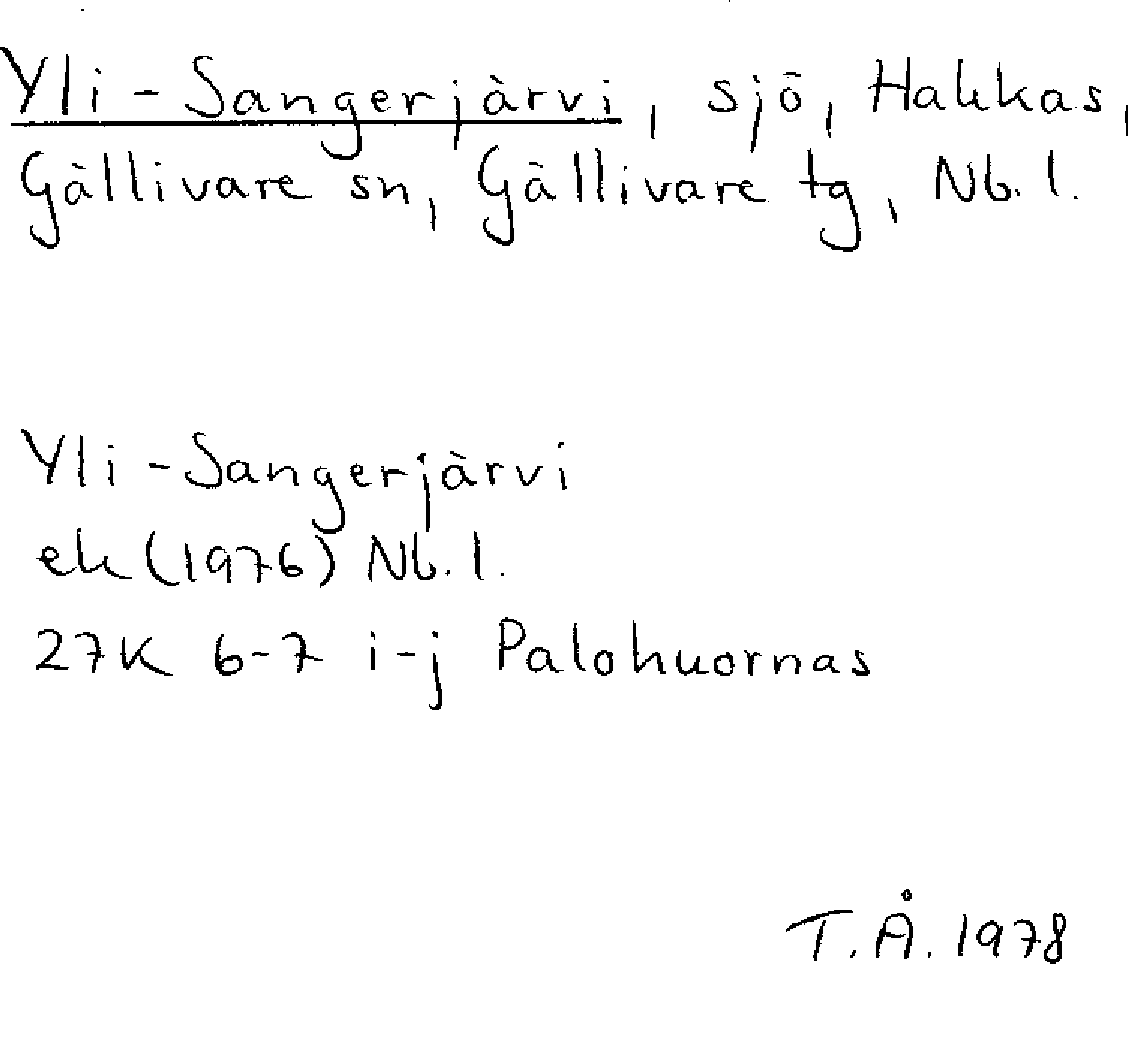 Yli-Sangerjärvi, sjö, Hakkas,
Gällivare sn, Gällivare tg, Nb. l.
Yli-Sangerjärvi
ek (1976) Nb. l.
27K 6-7 i-j Palohuornas
T.Å. 1978